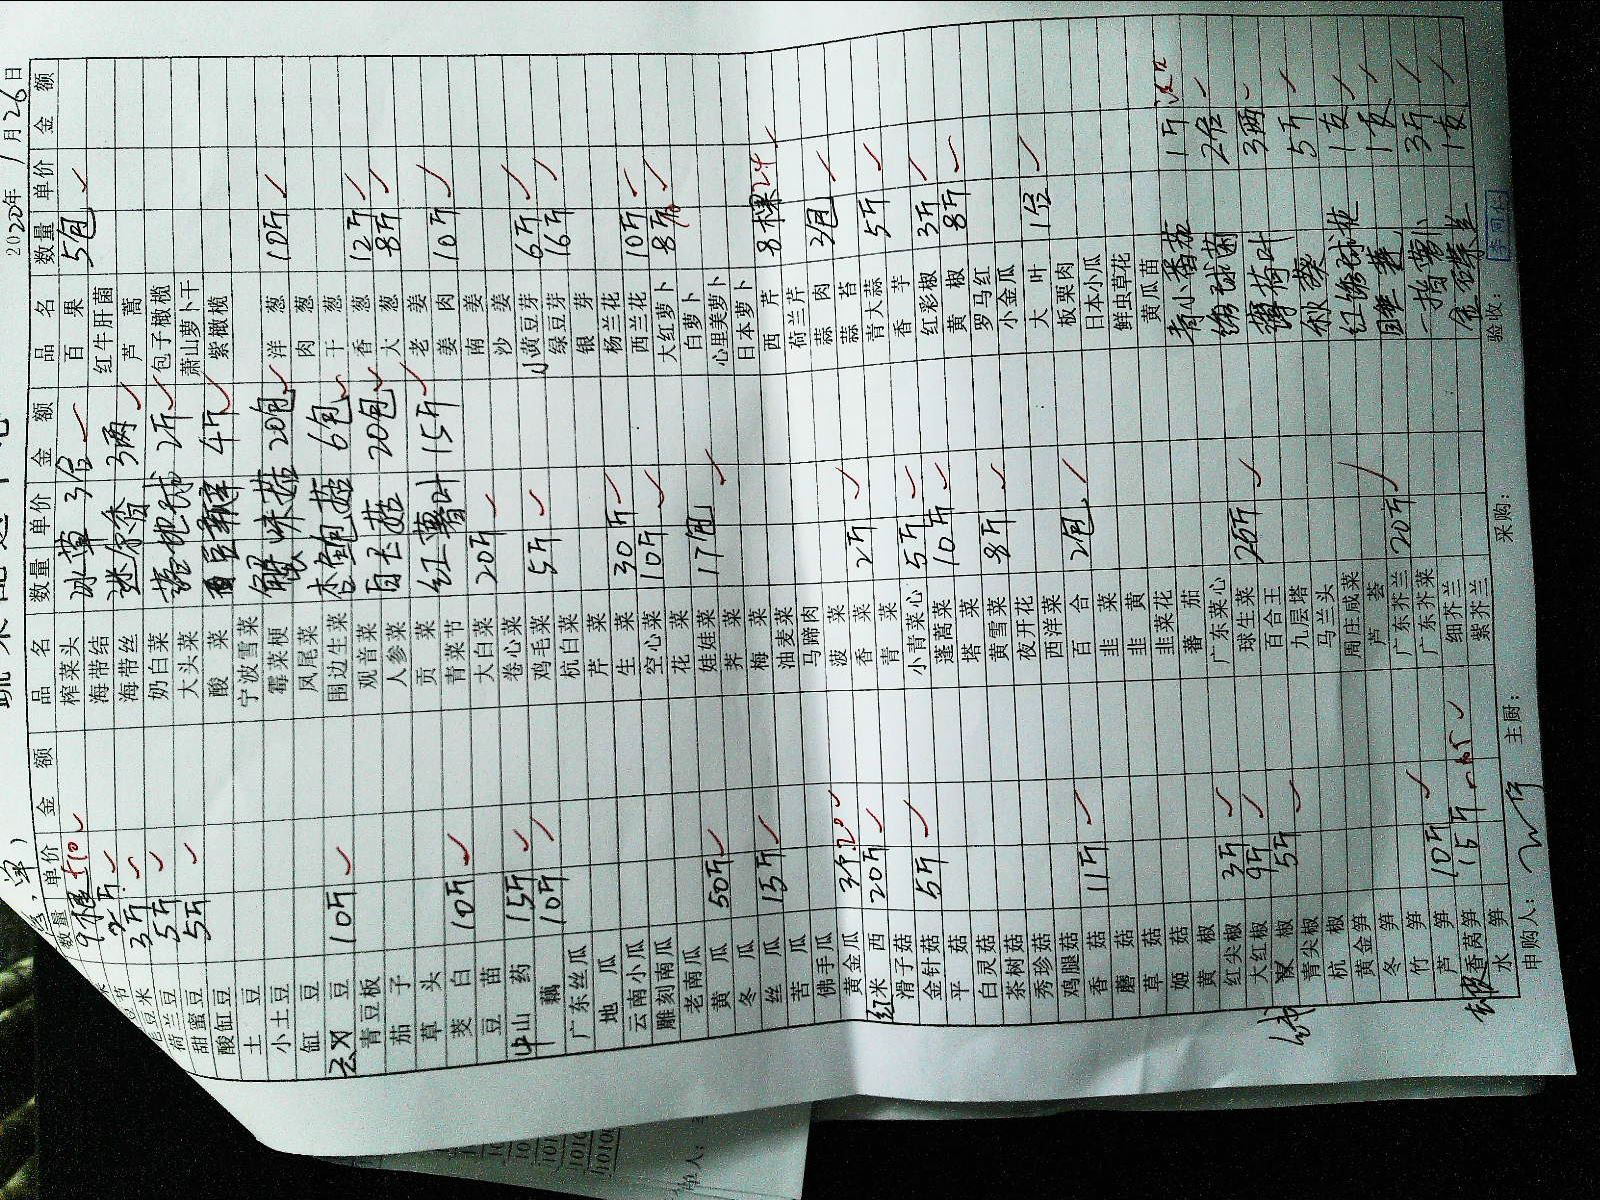 2020年 1月 26日
品 名 数量 单价 金 额 品 名 数量 单价 金 额
节 9
毛豆米 3斤
荷兰豆 5斤
甜蜜豆 5斤
酸缸豆
土 豆
小土豆
缸 豆
豆 10斤
青豆板
茄 子
草 头
茭 白 10斤
豆 苗
山 药 15斤
藕 10斤
广东丝瓜
地 瓜
云南小瓜
雕刻南瓜
老南瓜
黄 瓜 50斤
冬 瓜
丝 瓜 15斤
苦 瓜
佛手瓜
黄金瓜 3个
红米 西 20斤
滑子菇
金针菇 5斤
平 菇
白灵菇
茶树菇
秀珍菇
鸡腿菇
香 菇 11斤
蘑 菇
草 菇
姬 菇
黄 椒
红尖椒 3斤
大红椒 9斤
椒 5斤
青尖椒
杭 椒
黄金笋
冬 笋
竹 笋
芦 笋 10斤
香莴笋 15斤
水 笋
品 名 数量 单价 金 额
榨菜头 冰草 3台
海带结
海带丝 迷尔香 3两
奶白菜
大头菜 2斤
酸 菜 4斤
宁波雪菜
霉菜梗 蟹味菇 20包
凤尾菜
围边生菜 杏鲍菇 6包
观音菜
人参菜 白玉菇 20包
贡 菜
青菜节 红薯叶 15斤
大白菜 20斤
卷心菜
鸡毛菜 5斤
杭白菜
芹 菜
生 菜 30斤
空心菜 10斤
花 菜
娃娃菜 17包
荠 菜
梅 菜
油麦菜
马蹄肉
菠 菜
香 菜 2斤
青 菜
小青菜心 5斤
蓬蒿菜 10斤
塔 菜
黄雪菜 8斤
夜开花
西洋菜
百 合 2包
韭 菜
韭 黄
韭菜花
蕃 茄
广东菜心
球生菜 20斤
百合王
九层塔
马兰头
周庄咸菜
芦 荟
广东芥兰 20斤
广东芥菜
细芥兰
紫芥兰
品 名 数量 单价 金 额
百 果 5包
红牛肝菌
芦 蒿
包子橄榄
萧山萝卜干
紫橄榄
洋 葱 10斤
肉 葱
干 葱
香 葱 12斤
大 葱 8斤
老 姜
姜 肉 10斤
南 姜
沙 姜
小黄豆芽 6斤
绿豆芽 16斤
银 芽
杨兰花
西兰花 10斤
大红萝卜 8斤
白萝卜
心里美萝卜
日本萝卜
西 芹 8棵
荷兰芹
蒜 肉 3包
蒜 苔
青大蒜 5斤
香 芋
红彩椒 3斤
黄 椒 8斤
罗马红
小金瓜
大 叶 1台
板栗肉
日本小瓜
鲜虫草花
黄瓜苗
青小番茄 1斤
绣球菌 2台
薄荷叶 3两
秋葵 5斤
红绣球花 1支
1支
一指萝卜 3斤
1支
申购人: 主厨: 采购: 验收: